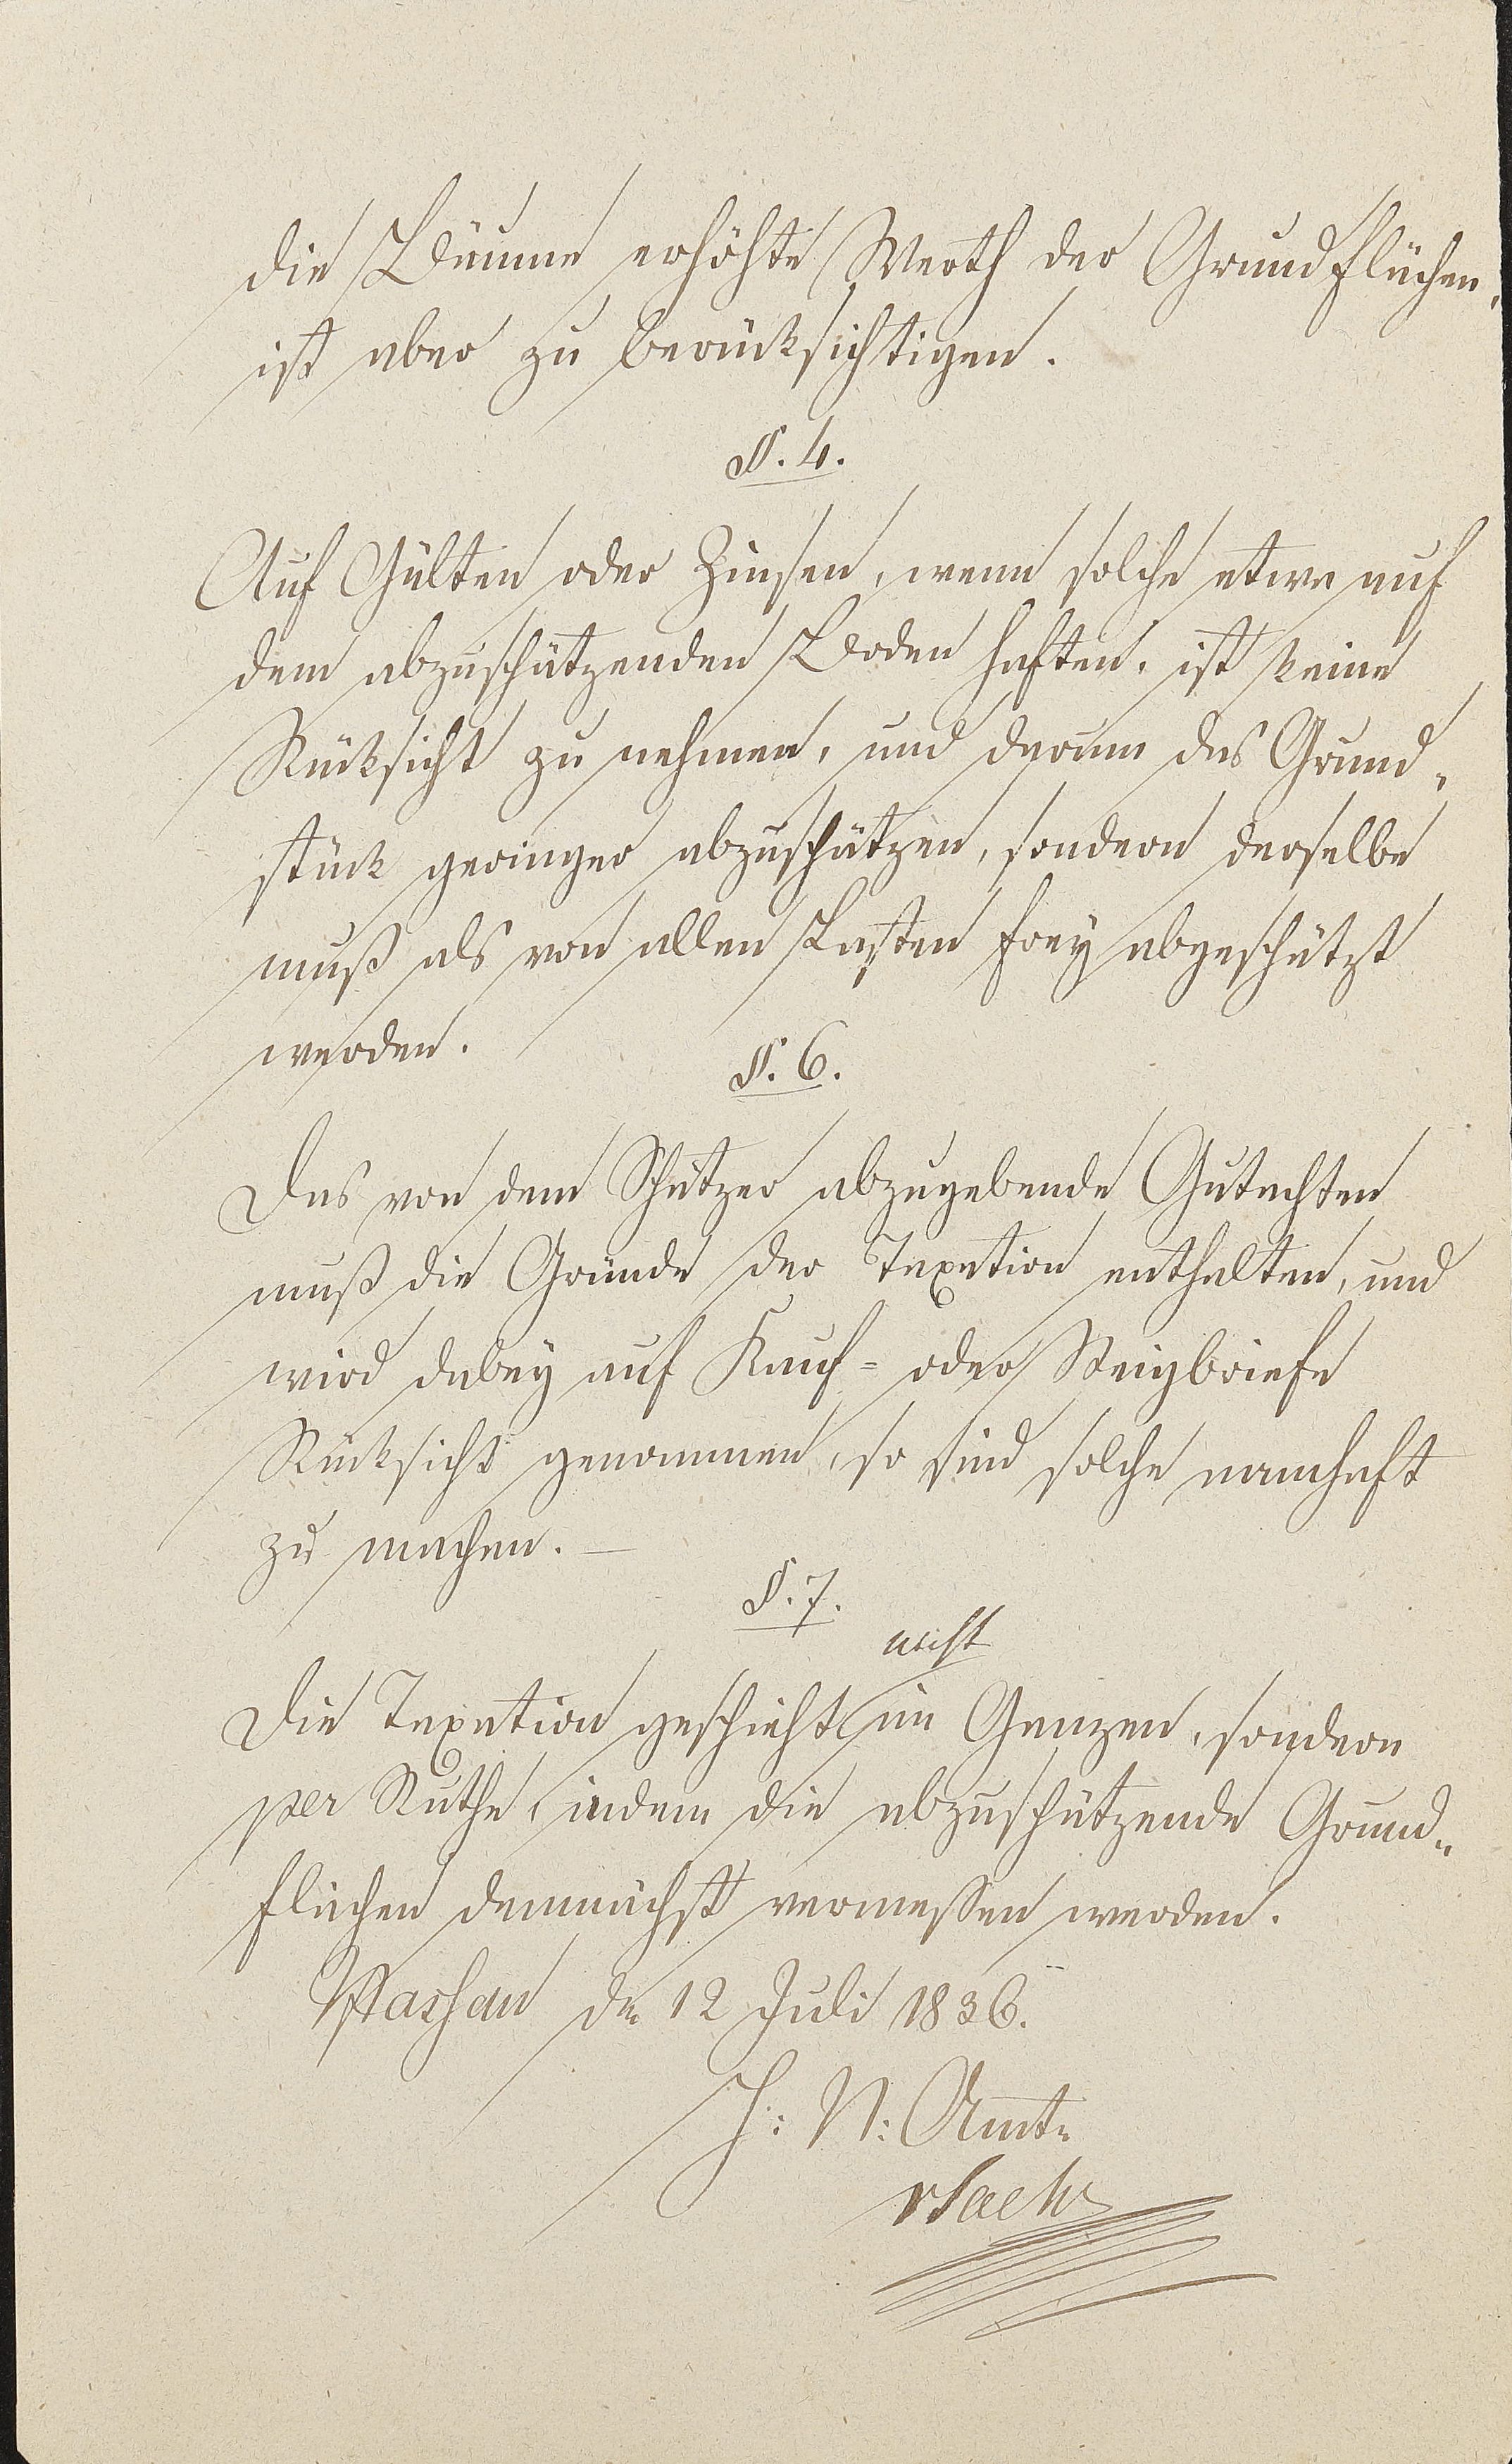 die Bäume erhöhte Werth der Grundflächen,
ist aber zu berücksichtigen.
§. 4.
Auf Gülten oder Zinsen, wenn solche etwa auf
dem abzuschätzenden Boden haften, ist keine
Rücksicht zu nehmen, und darum das Grund„
stück geringer abzuschätzen, sondern derselbe
muß als von allen Lasten frey abgeschätzt
werden.
§. 6.
Das von dem Schätzer abzugebende Gutachten
muß die Gründe der Taxation enthalten, und
wird dabey auf Kauf- oder Steigbriefe
Rücksicht genommen, so sind solche namhaft
zu machen. —
§. 7.
nicht
Die Taxation geschieht im Ganzen, sondern
per Ruthe, indem die abzuschätzende Grund„
flächen demnächst vermessen werden.
den 12 Juli 1836.
H: N: Amt.